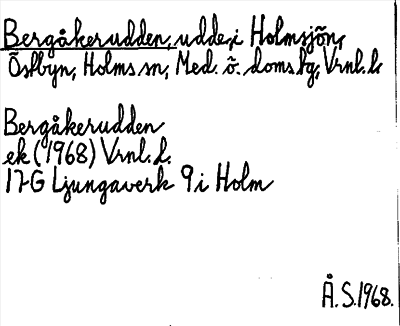 Bergåkerudden, udde, i Holmsjön,
Östbyn, Holms sn, Med. ö. domsbg, Vrnl. l.
Bergåkerudden
ek (1968) Vrnl. l.
17G Ljungaverk 9 i Holm
Å. S. 1968.